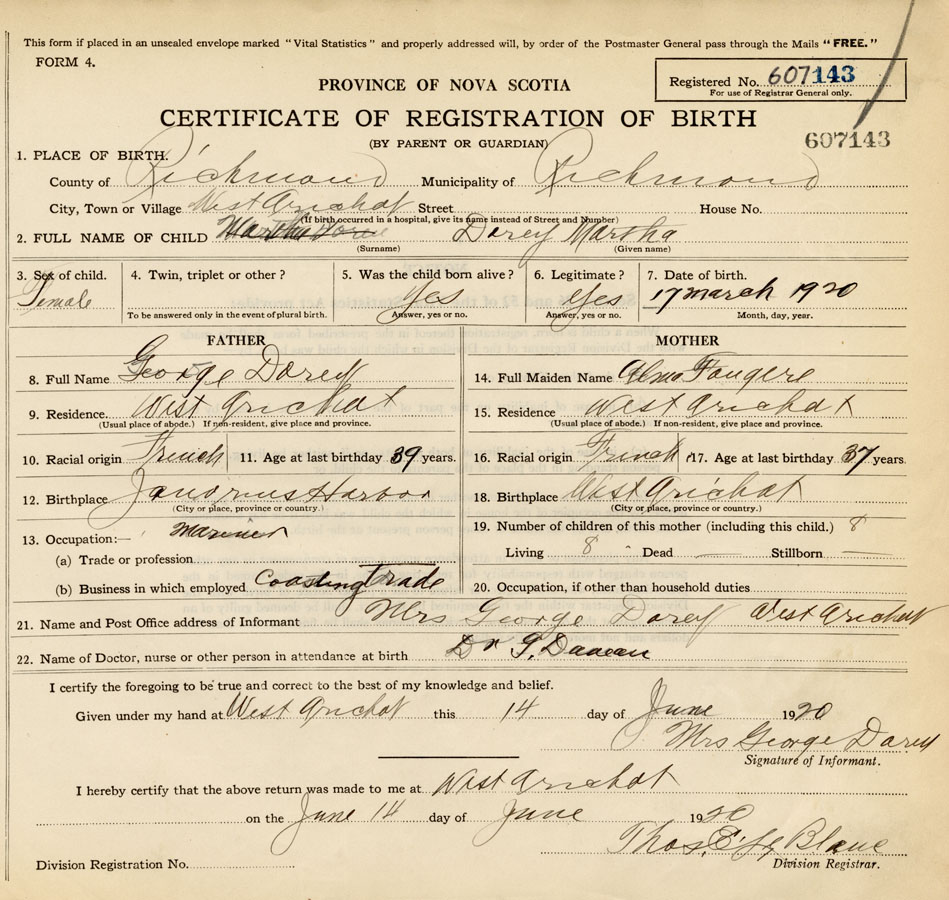 This form if placed in an unsealed envelope marked "Vital Statistics" and properly addressed will, by order of the Postmaster General pass through the Mails "FREE."
FORM 4.
Registered No. 607143
For use of Registrar General only.
PROVINCE OF NOVA SCOTIA
CERTIFICATE OF REGISTRATION OF BIRTH
607143
(BY PARENT OR GUARDIAN)
1. PLACE OF BIRTH.
County of Richmond Municipality of Richmond
City, Town or Village West Arichat Street House No.
(If birth occurred in a hospital, give its name instead of Street and Number)
2. FULL NAME OF CHILD Martha Dorey Martha
(Surname) (Given name)
3. Sex of child. 4. Twin, triplet or other? 5. Was the child born alive? 6. Legitimate? 7. Date of birth.
Female Yes Yes 17 march 1920
To be answered only in the event of plural birth. Answer, yes or no. Answer, yes or no. Month, day, year.
FATHER MOTHER
8. Full Name George Dorey 14. Full Maiden Name Alma Fougere
9. Residence. West Arichat 15. Residence West Arichat
(Usual place of abode.) If non-resident, give place and province. (Usual place of abode.) If non-resident, give place and province.
10. Racial origin French 11. Age at last birthday 39 years. 16. Racial origin French 17. Age at last birthday 37 years.
12. Birthplace Harbor 18. Birthplace West Arichat
(City or place, province or country.) (City or place, province or country.)
13. Occupation:— mariner 19. Number of children of this mother (including this child.) 8
(a) Trade or profession Living 8 Dead — Stillborn —
(b) Business in which employed Coasting trade 20. Occupation, if other than household duties
21. Name and Post Office address of Informant Mrs George Dorey West Arichat
22. Name of Doctor, nurse or other person in attendance at birth Dr
I certify the foregoing to be true and correct to the best of my knowledge and belief.
Given under my hand at West Arichat this 14 day of June 1920
Mrs George Dorey
Signature of Informant.
I hereby certify that the above return was made to me at West Arichat
on the June 14 day of June 1920
Thos. E. Le Blanc
Division Registration No. Division Registrar.